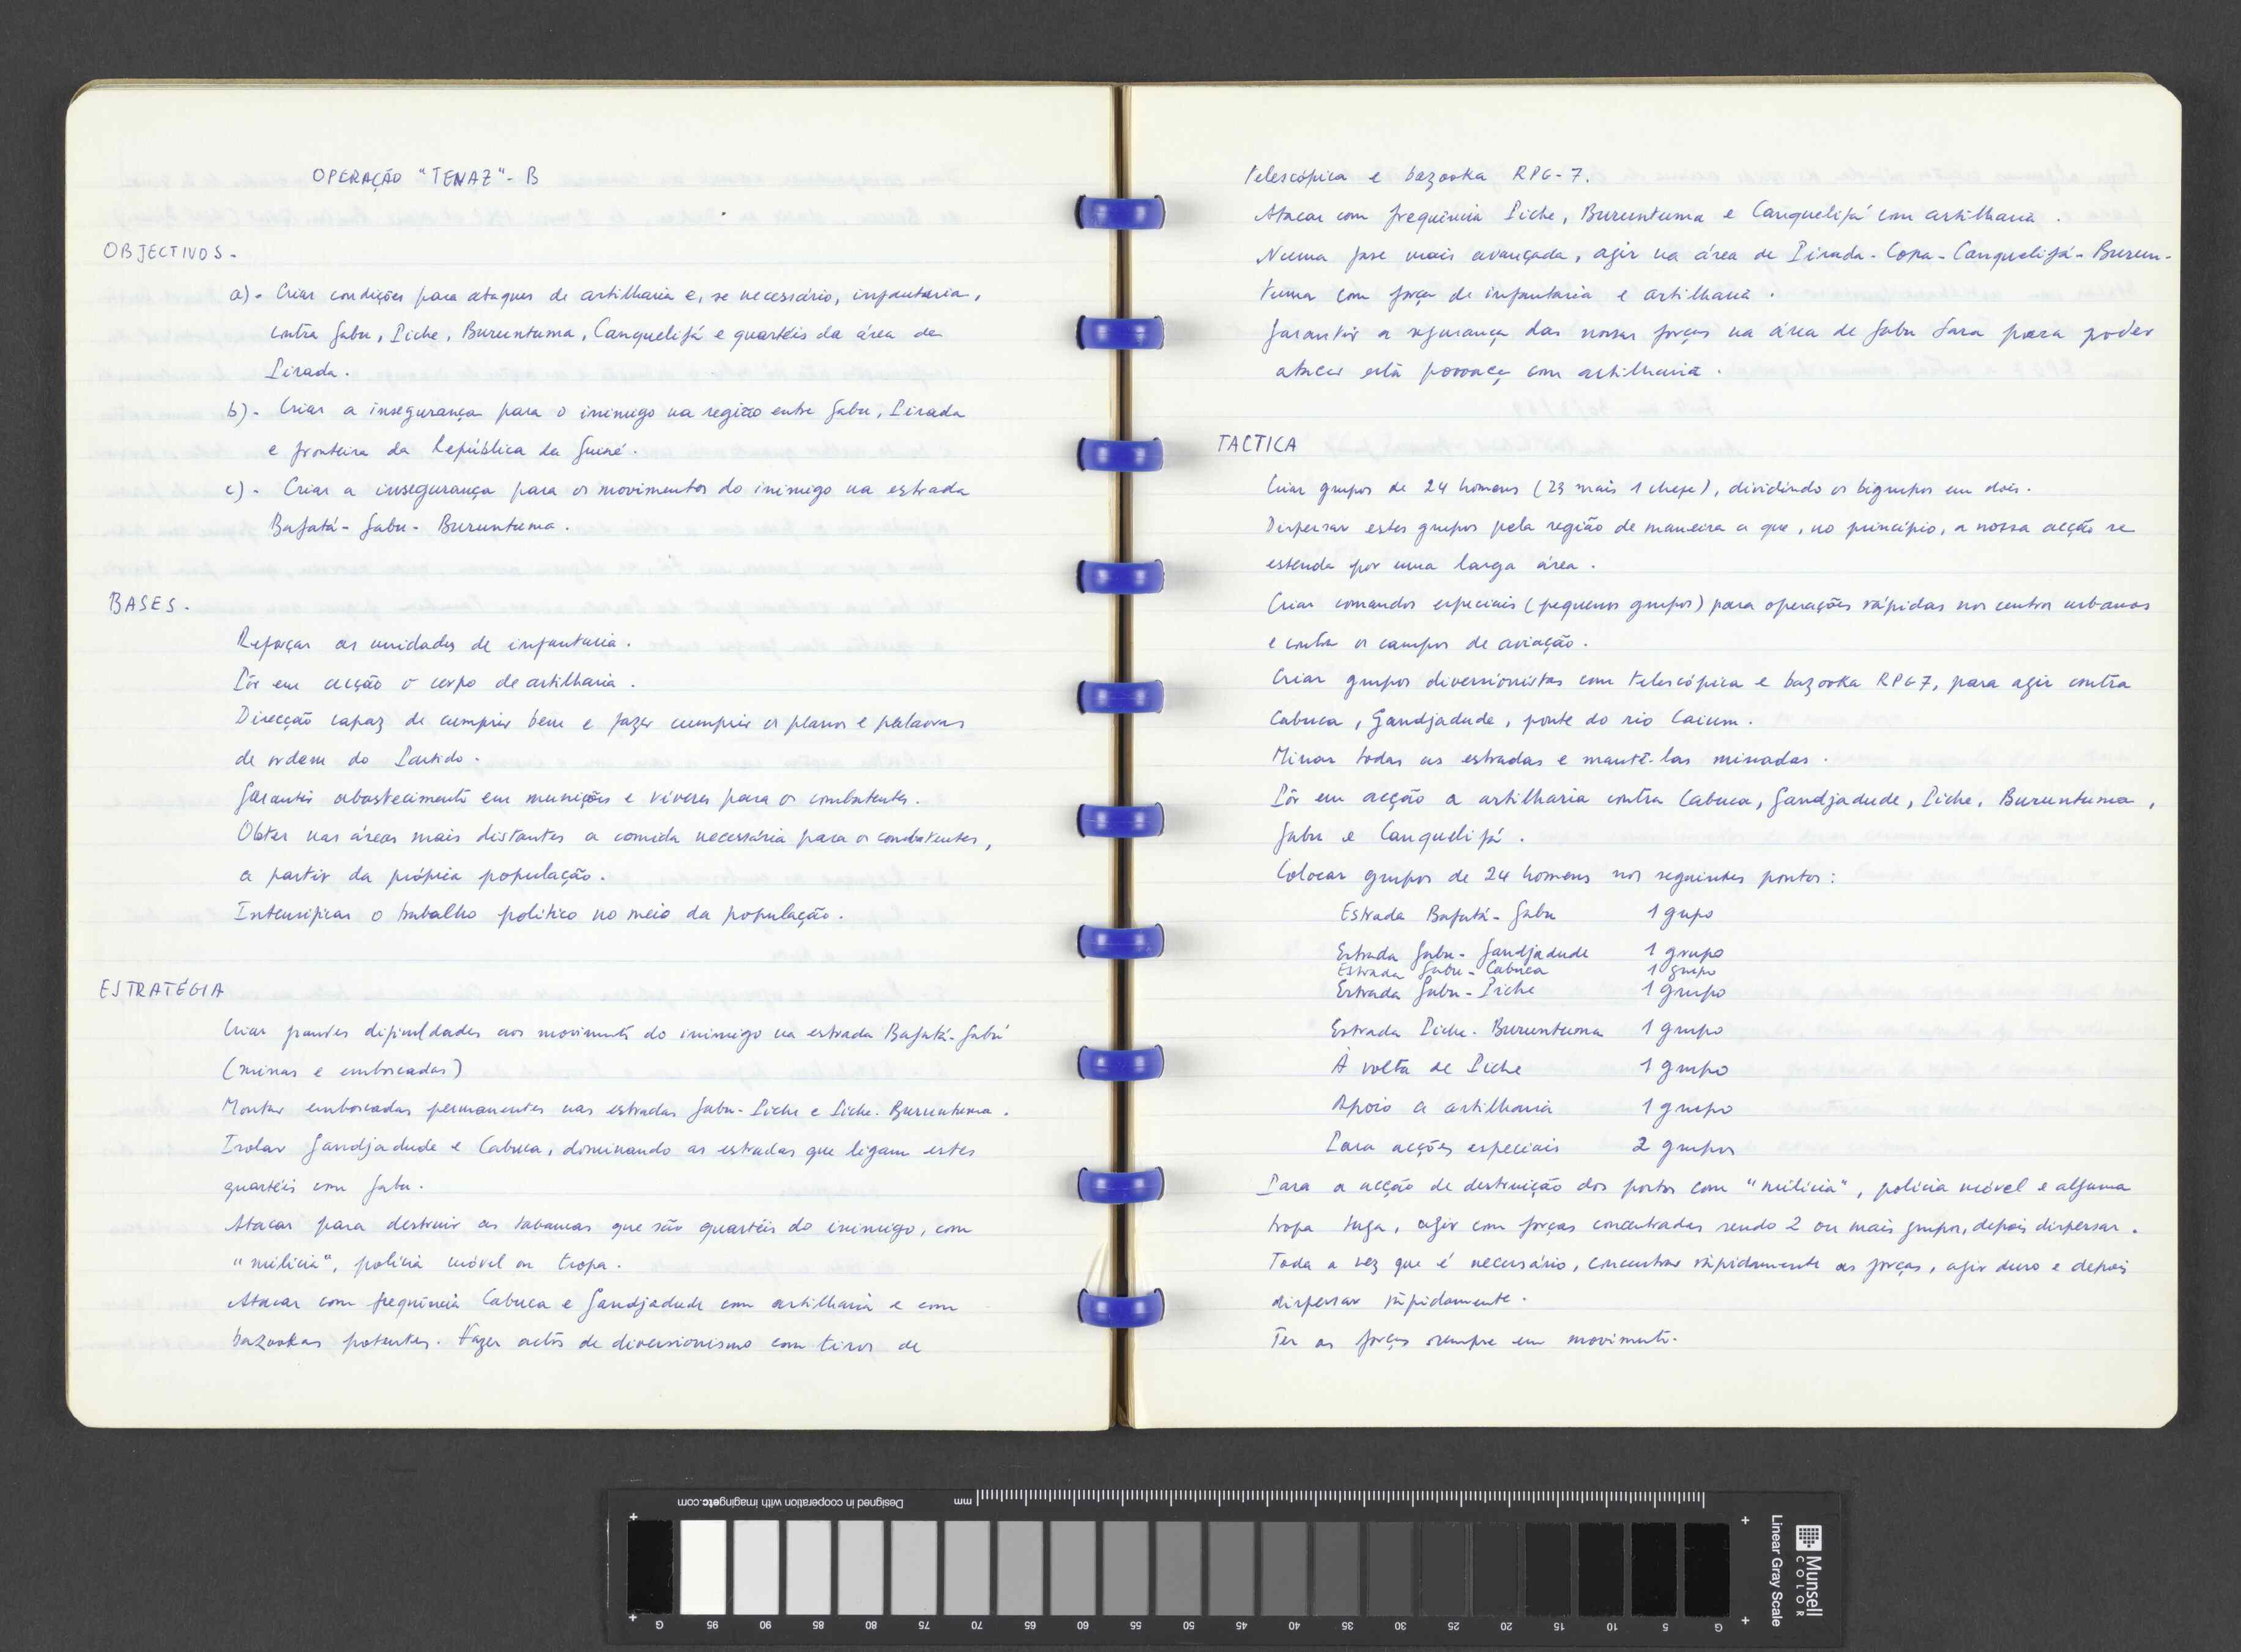 OPERAÇÃO "TENAZ"- B
OBJECTIVOS -
a)- Criar condições para ataques de artilharia e, se necessário, infantaria,
contra Gabu, Piche, Buruntuma, Canquelifá e quartéis da área de
Pirada.
b)- Criar a insegurança para o inimigo na região entre Gabu, Pirada
e fronteira da República da Guiné.
c)- Criar a insegurança para os movimentos do inimigo na estrada
Bafatá- Gabu- Buruntuma.
BASES -
Reforçar as unidades de infantaria.
Pôr em acção o corpo de artilharia.
Direcção capaz de cumprir bem e fazer cumprir os planos e palavras
de ordem do Partido.
Garantir abastecimento em munições e víveres para os combatentes.
Obter nas áreas mais distantes a comida necessária para os combatentes,
a partir da própria população.
Intensificar o trabalho politico no meio da população.
ESTRATÉGIA
Criar grandes dificuldades aos movimentos do inimigo na estrada Bafatá-Gabú
(minas e emboscadas)
Montar emboscadas permanentes nas estradas Gabu-Piche e Piche-Buruntuma.
Isolar Gandjadude e Cabuca, dominando as estradas que ligam estes
quartéis com Gabu.
Atacar para destruir as tabancas que são quartéis do inimigo, com
"milícia", polícia móvel ou tropa.
Atacar com frequência Cabuca e Gandjadude com artilharia e com
bazookas potentes. Fazer actos de diversionismo com tiros de
telescópica e bazooka RPG-7.
Atacar com frequência Piche, Buruntuma e Canquelifá com artilharia.
Numa fase mais avançada, agir na área de Pirada-Copa-Canquelifá-Burun-
tuma com força de infantaria e artilharia.
Garantir a segurança das nossas forças na área de Gabu Sara para poder
atacar esta povoaç com artilharia.
TACTICA
Criar grupos de 24 homens (23 mais 1 chefe), dividindo os bigrupos em dois.
Dispersar estes grupos pela região de maneira a que, no princípio, a nossa acção se
estenda por uma larga área.
Criar comandos especiais (pequenos grupos) para operações rápidas nos centros urbanos
e contra os campos de aviação.
Criar grupos diversionistas com telescópica e bazooka RPG7, para agir contra
Cabuca, Gandjadude, ponte do rio Caium.
Minar todas as estradas e mantê-las minadas.
Pôr em acção a artilharia contra Cabuca, Gandjadude, Piche, Buruntuma,
Gabu e Canquelifá.
Colocar grupos de 24 homens nos seguintes pontos:
Estrada Bafatá-Gabu 1 gupo
Estrada Gabu-Gandjadude 1 grupo
Estrada Gabu-Cabuca 1 grupo
Estrada Gabu-Piche 1 grupo
Estrada Piche-Buruntuma 1 grupo
À volta de Piche 1 grupo
Apoio a artilharia 1 grupo
Para acções especiais 2 grupos
Para a acção de destruição dos postos com "milícia", polícia móvel e alguma
tropa tuga, agir com forças concentradas sendo 2 ou mais grupos, depois dispersar.
Toda a vez que é necessário, concentrar ràpidamente as forças, agir duro e depois
dispersar ràpidamente.
Ter as forças sempre em movimento.
Designed in cooperation with imagingetc.com
mm
G 95 90 85 80 75 70 65 60 55 50 45 40 35 30 25 20 15 10 5 G
Munsell
COLOR
Linear Gray Scale